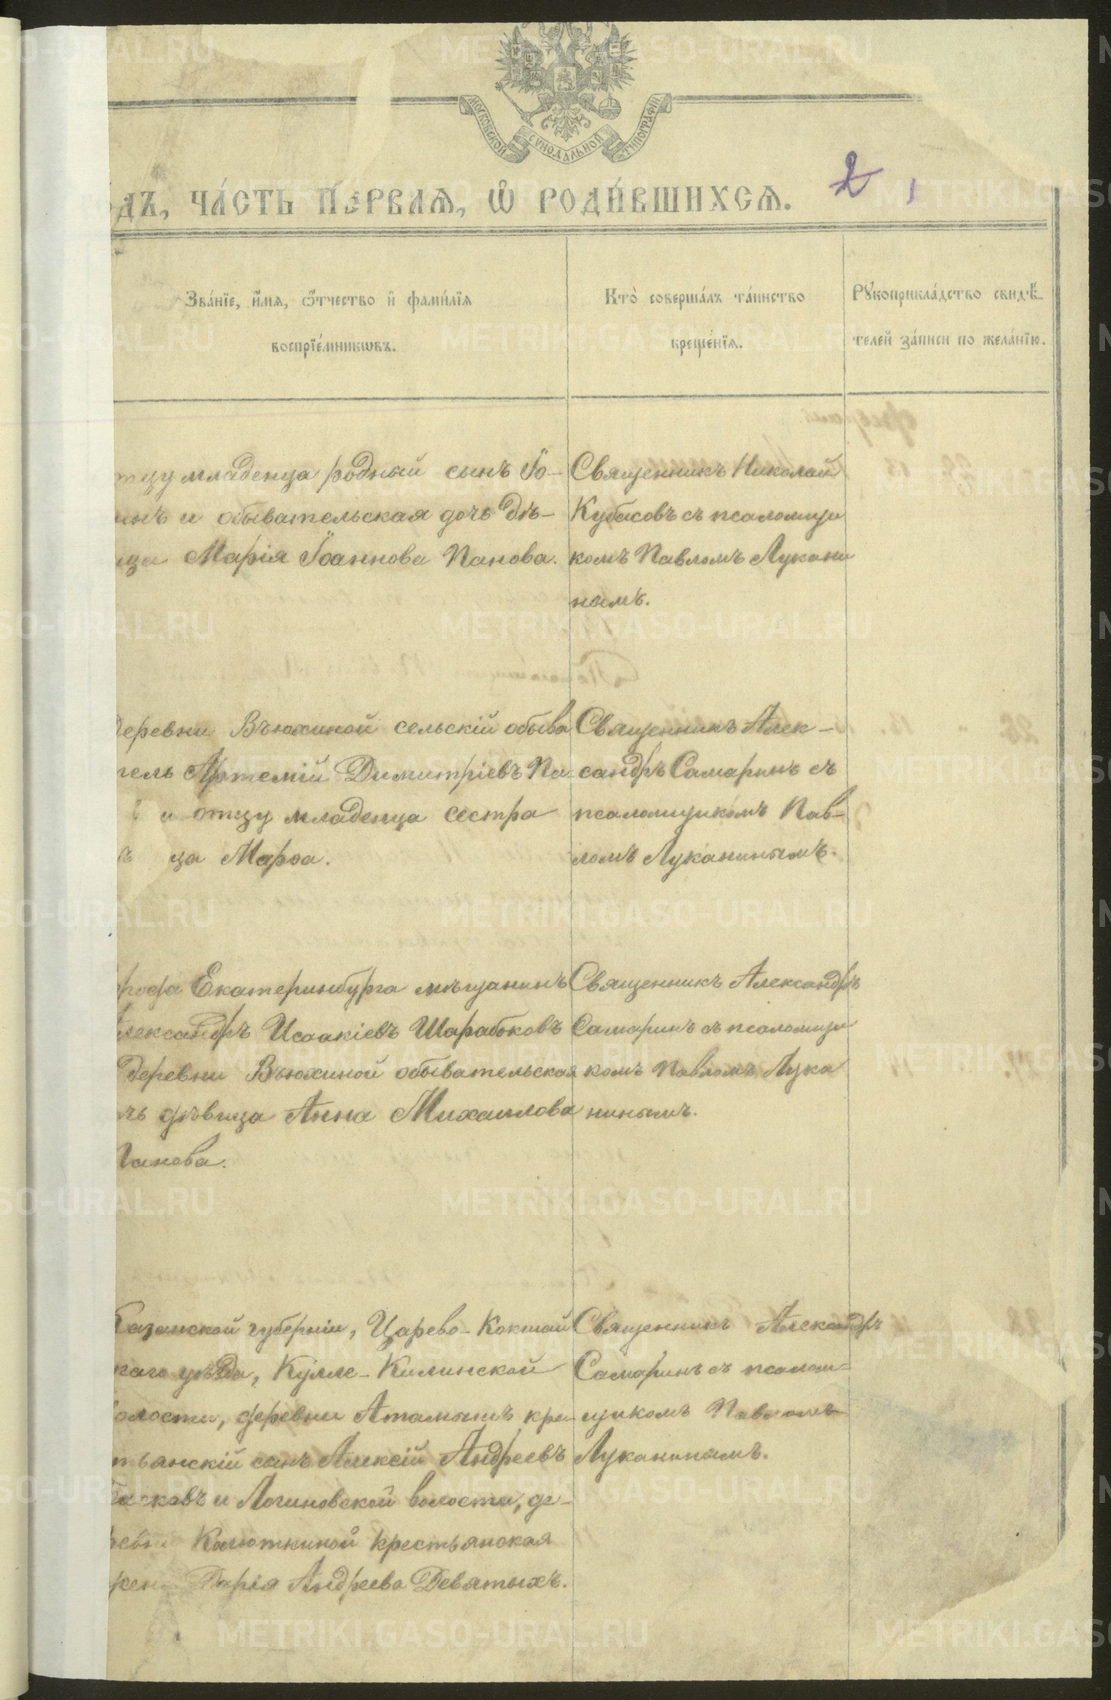 МОСКОВСКОЙ СѴНОДАЛЬНОЙ ТИПОГРАФІИ
ДЪ, ЧА́СТЬ ПЕ́РВАЯ, Ѡ҆ РОДИ́ВШИХСЯ. 2 1
Зва́нїе, и҆́мя, ѻ҆́тчество и҆ фами́лїя
воспрїе́мникѡвъ.
Кто̀ соверша́лъ та́инство
креще́нїя.
Рꙋкоприкла́дство свидѣ́-
телей за́писи по жела́нїю.
тцу младенца родный сынъ Іо-
нъ и обывательская дочь дѣ-
ица Марія Іоаннова Панова.
Священникъ Николай
Кубасовъ съ псаломщи
комъ Павломъ Лукани
нымъ.
Деревни Вьюхиной сельскій обыва
тель Артемій Димитріевъ Па-
и отцу младенца сестра
ца Марѳа.
Священникъ Алек-
сандръ Самаринъ съ
псаломщикомъ Пав-
ломъ Луканинымъ.
орода Екатеринбурга мѣщанинъ
лександръ Исаакіевъ Шарабковъ
деревни Вьюхиной обывательская
чь дѣвица Анна Михаилова
Панова.
Священникъ Александръ
Самаринъ съ псаломщи
комъ Павломъ Лука
нинымъ.
Казанской губерніи, Царево-Кокшай
каго уѣзда, Кулле-Киминской
олости, деревни Атамышъ кре-
тьянскій сынъ Алексій Андреевъ
и Логиновской волости, де-
ревни Калюткиной крестьянская
жена Дарія Андреева Девятыхъ.
Священникъ Александръ
Самаринъ съ псалом-
щикомъ Павломъ
Луканинымъ.
METRIKI.GASO-URAL.RU